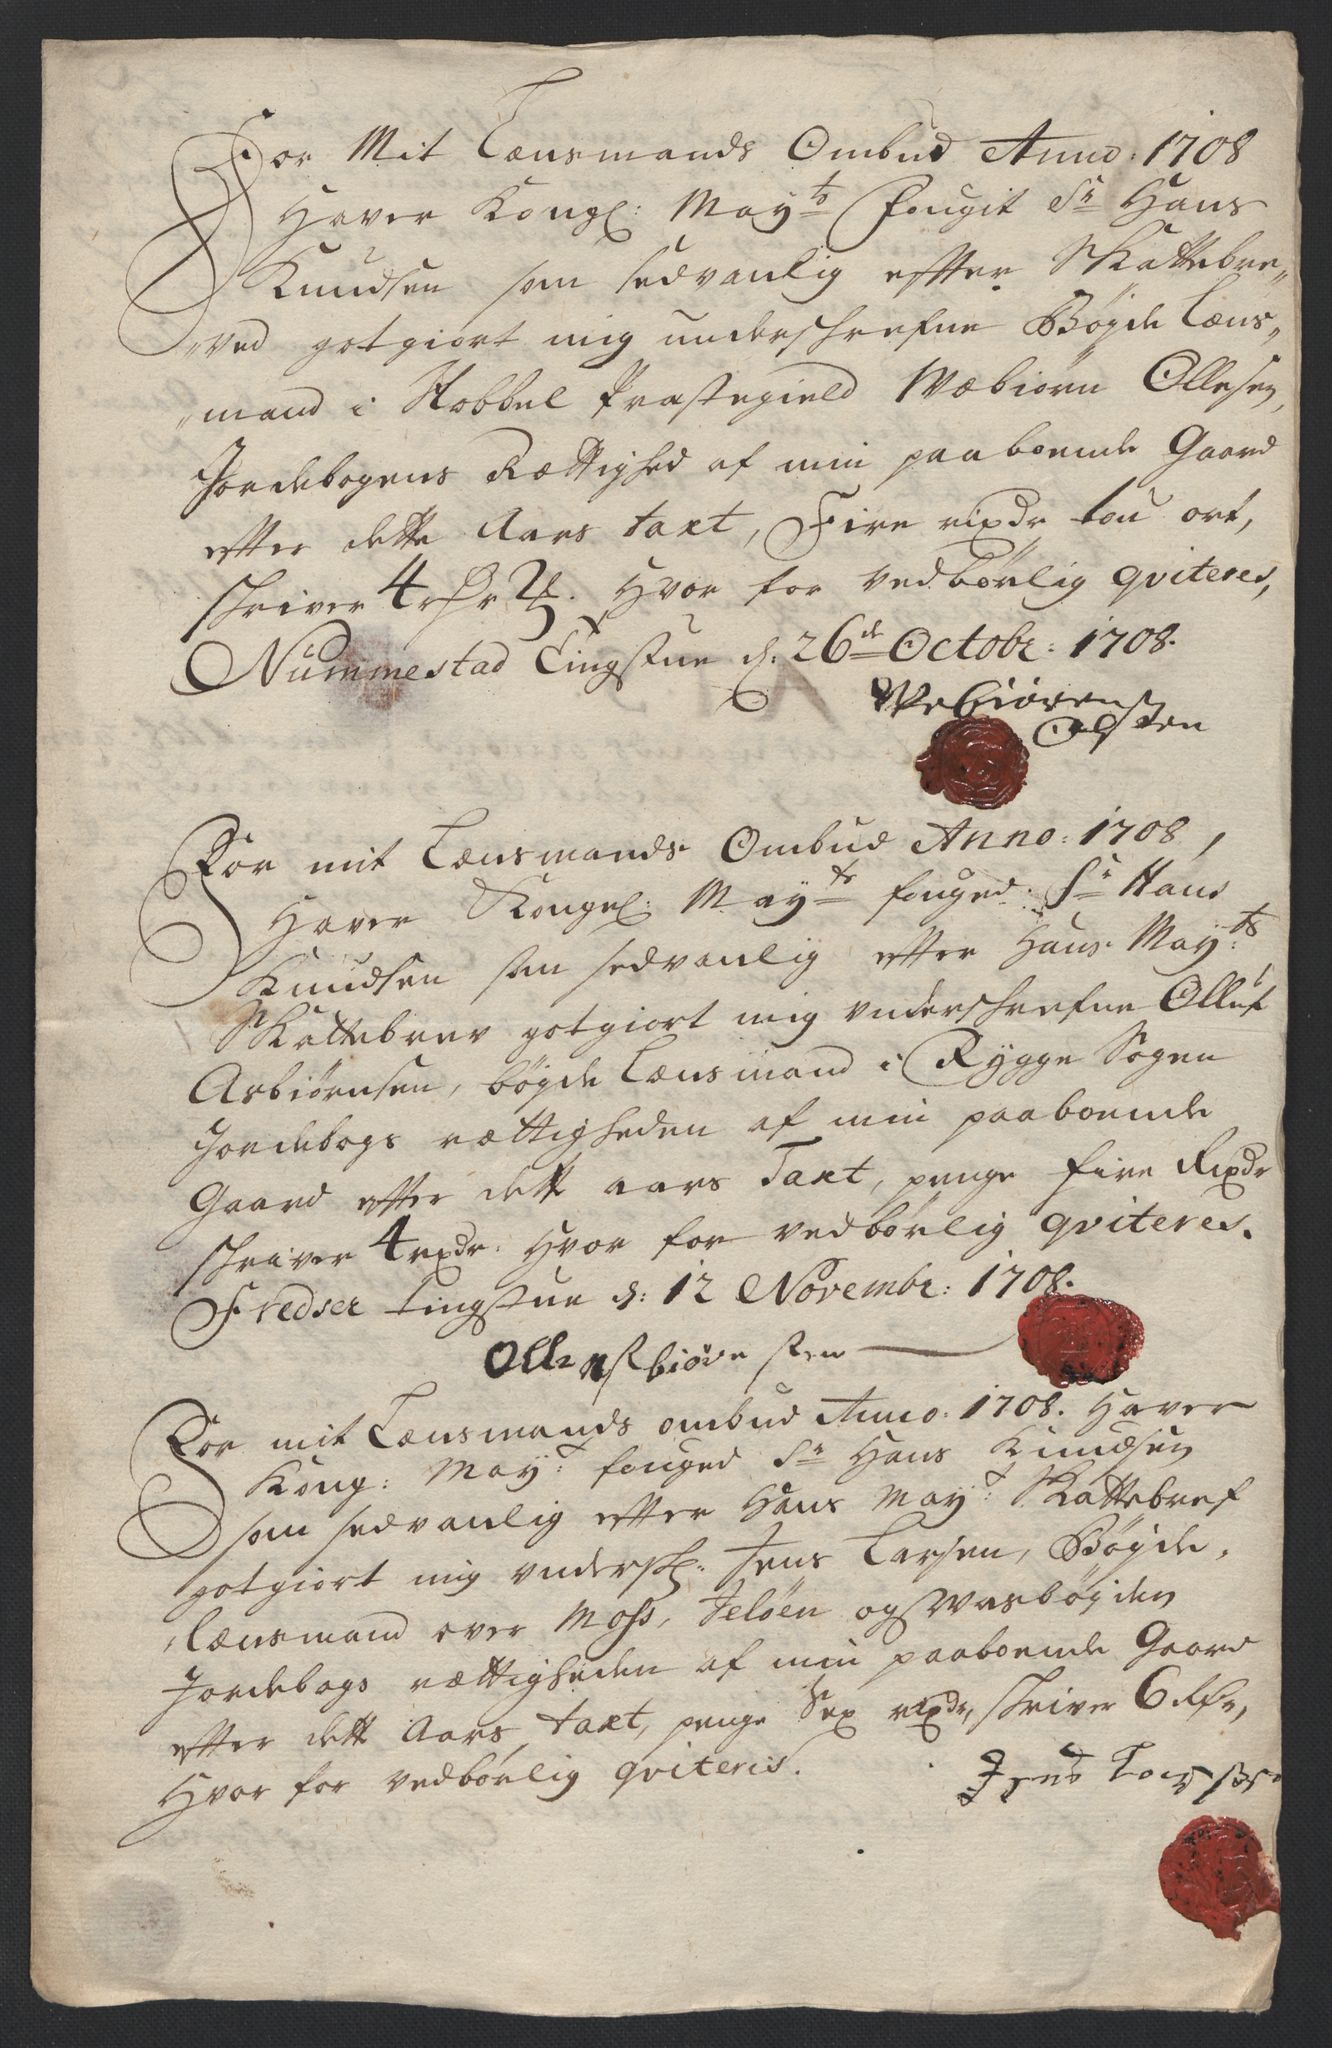 For Mit Lænsmands Ombud Anno: 1708
Haver Kongl: May:ts Fougit Sr Hans
Knudsen som sedvanlig effter Skattebre„
„ved gotgiort mig underschrefne Bøyde Læns„
„mand i Hobbel Præstegield Webiørn Ollesen,
Jordebogens Rættighed af min paaboende Gaard
efter dette Aars taxt, Fire rixdr tou ort,
schriver 4 rdr 2 ort. Hvor for vedbørlig qviteres,
Nummestad Tingstue d: 26de Octobr: 1708.
Webiørens
Olsten
For mit Lænsmands Ombud Anno: 1708,
Haver Kongel: May:ts fouged Sr Hans
Knudsen som sedvanlig effter Hans May:ts
Skattebrev gotgiort mig underschrefne Olluf
Asbiørnsen, bøyde Lænsmand i Rygge Sogen
Jordebogs rættigheden af min paaboende
Gaard efter dett aars Taxt, penge fire Rixdr
schriver 4 rixdr. Hvor for vedbørlig qviteres.
Fredset tingstue d: 12 Novembr: 1708.
Olle Asbiørn sen
For mit Lænsmands ombud Anno: 1708. Haver
Kong: May:t fouged Sr Hans Knudsen
som sedvanlig efter Hans May:t Skattebref
gotgiort mig undersch: Jens Larsen, Bøyde„
„lænsmand over Moss, Jeløen og Wasbøyden
Jordebogs rættigheden af min paaboende Gaard
efter dett Aars taxt, penge Sex rixdr, schriver 6 Rdr,
Hvor for vedbørlig qviteris.
Jens Larssen